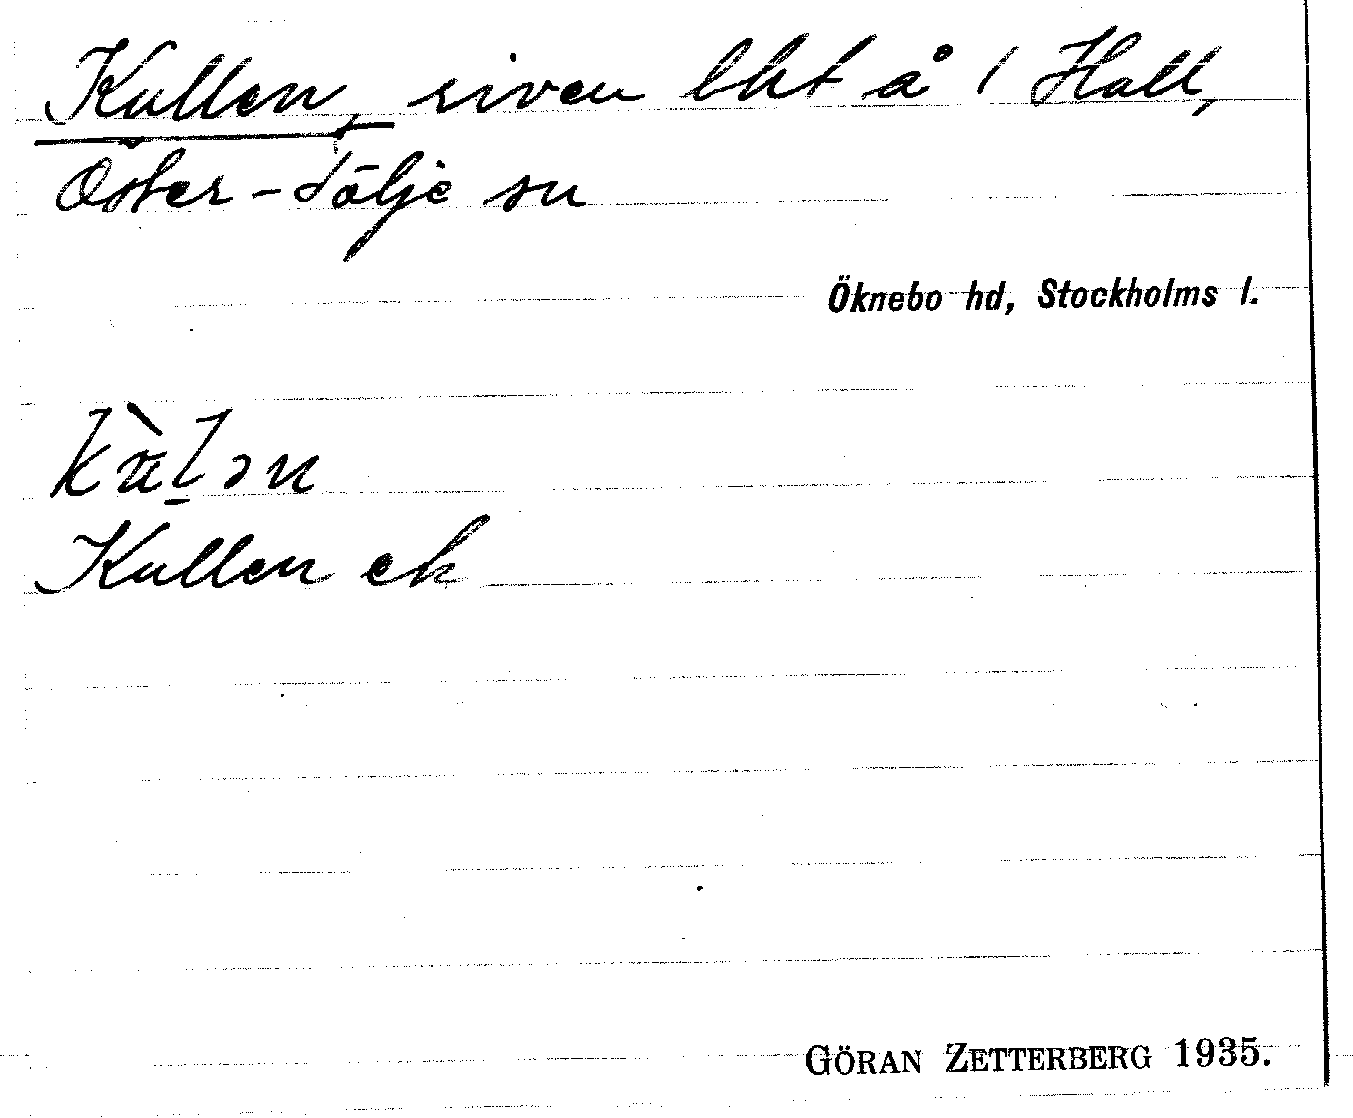 Kullen, riven lht å 1 Hall,
Öster-tälje sn
Öknebo hd, Stockholms l.
Kullen ek
GÖRAN ZETTERBERG 1935.